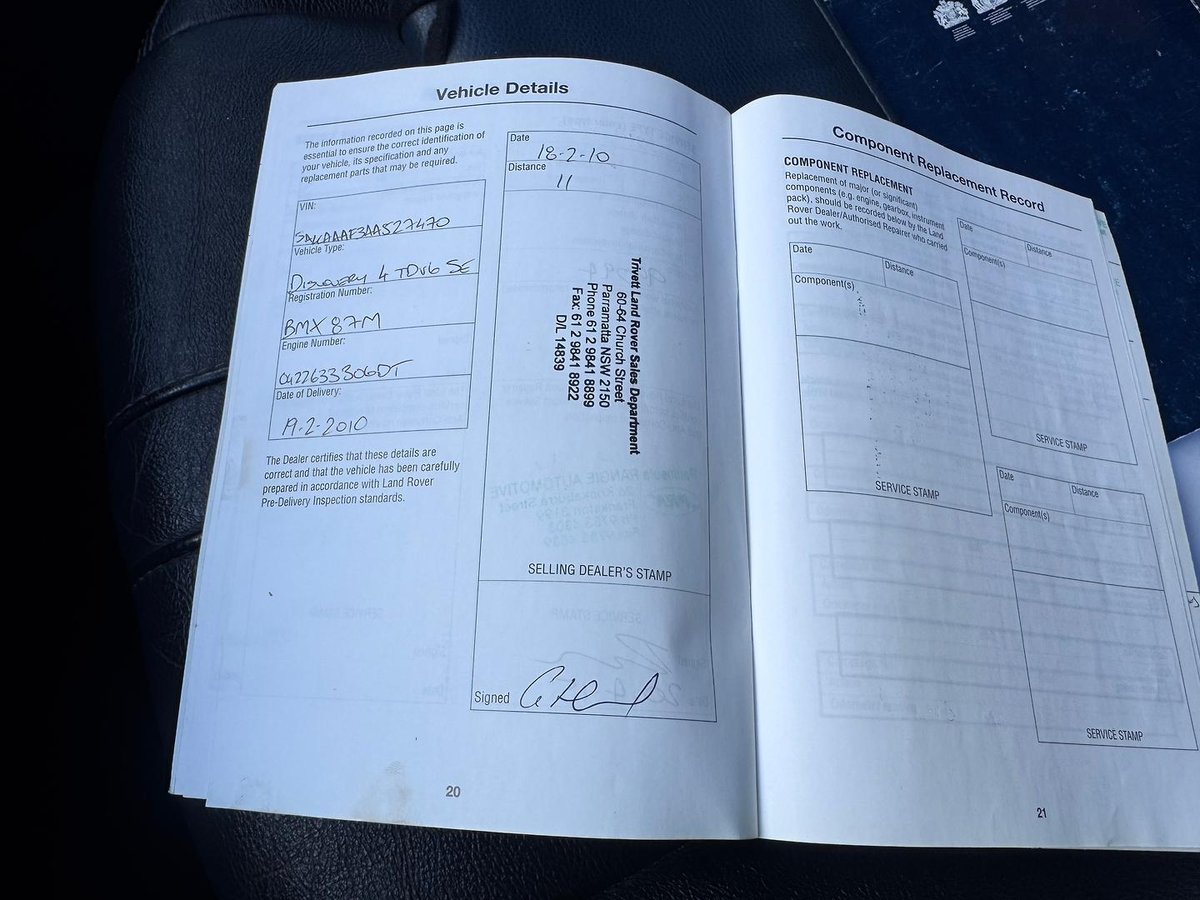 Vehicle Details
The information recorded on this page is
essential to ensure the correct identification of
your vehicle, its specification and any
replacement parts that may be required.
VIN:
SALLAAAF3AA527470
Vehicle Type:
Discovery 4 TDV6 SE
Registration Number:
BMX 87M
Engine Number:
0422633306DT
Date of Delivery:
19-2-2010
The Dealer certifies that these details are
correct and that the vehicle has been carefully
prepared in accordance with Land Rover
Pre-Delivery Inspection standards.
Date
18-2-10
Distance
11
Trivett Land Rover Sales Department
60-64 Church Street
Parramatta NSW 2150
Phone 61 2 9841 8899
Fax: 61 2 9841 8922
D/L 14839
SELLING DEALER'S STAMP
Signed
20
Component Replacement Record
COMPONENT REPLACEMENT
Replacement of major (or significant)
components (e.g. engine, gearbox, instrument
pack), should be recorded below by the Land
Rover Dealer/Authorised Repairer who carried
out the work.
Date
Distance
Component(s)
SERVICE STAMP
Date
Distance
Component(s)
SERVICE STAMP
Date
Distance
Component(s)
SERVICE STAMP
21